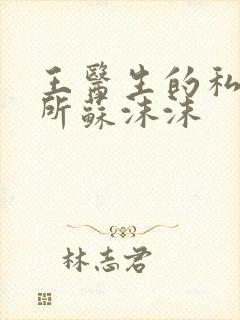 王醫生的私
所蘇沫沫
林志君